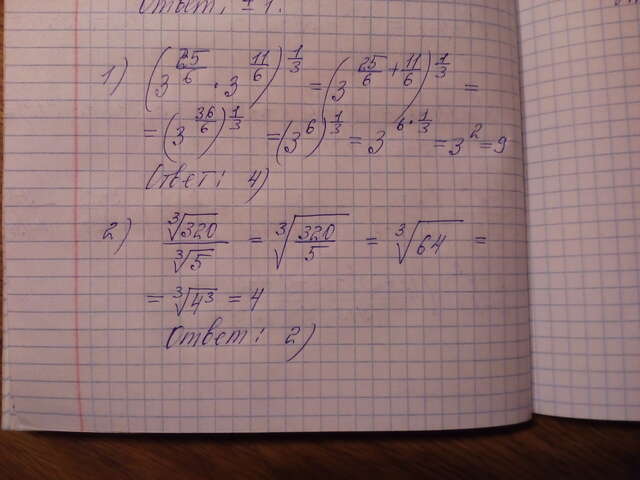 Ответ: ±1.
1) (3^(25/6) · 3^(11/6))^(1/3) = (3^(25/6 + 11/6))^(1/3) =
= (3^(36/6))^(1/3) = (3^6)^(1/3) = 3^(6·1/3) = 3^2 = 9
Ответ: 4)
2) ∛320/∛5 = ∛(320/5) = ∛64 =
= ∛4³ = 4
Ответ: 2)